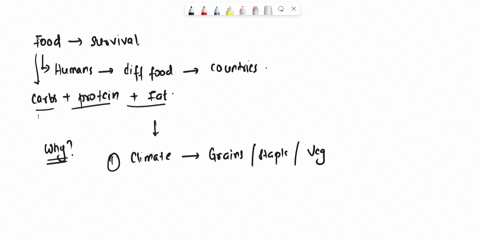 Food → survival
↳ Humans → diff food → countries.
carbs + protein + Fat.
↓
Why? ① Climate → Grains / staple / Veg